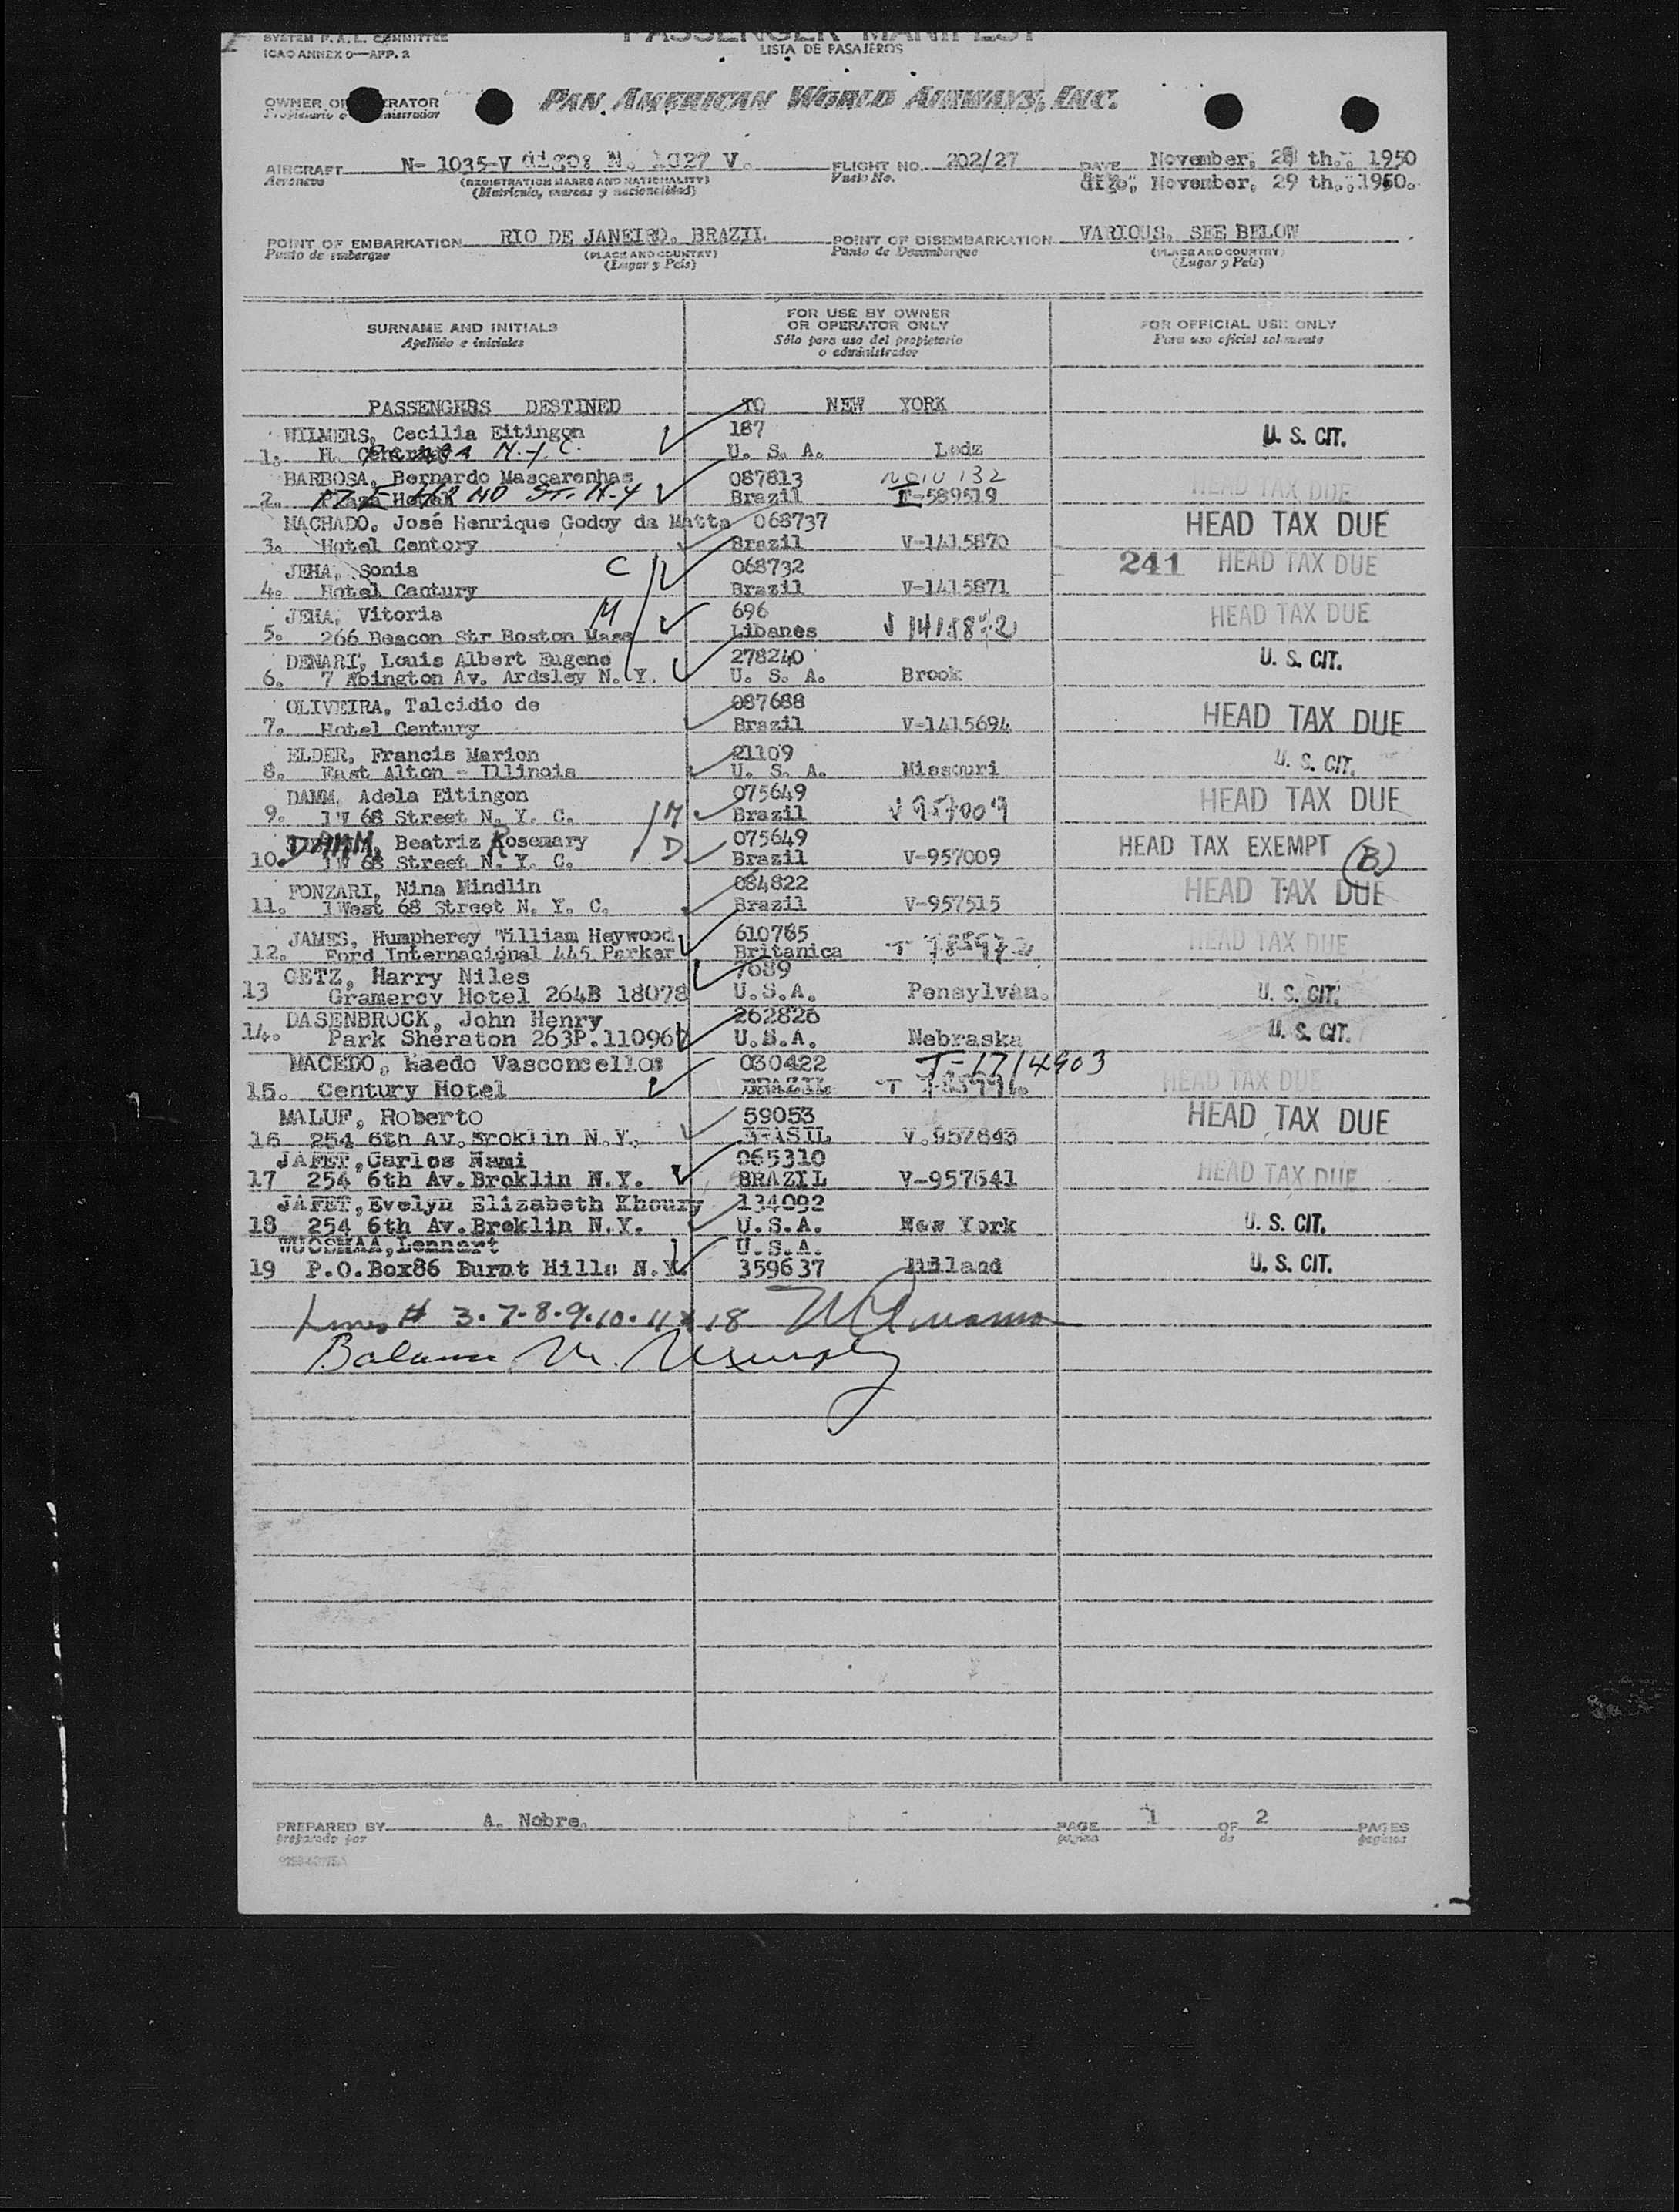 SYSTEM F.A.L. COMMITTEE
ICAO ANNEX 9—APP. 2
PASSENGER MANIFEST
LISTA DE PASAJEROS
OWNER OR OPERATOR
Propietario o administrador
PAN AMERICAN WORLD AIRWAYS, INC.
AIRCRAFT N- 1035-V digo: N. 1027 V. FLIGHT NO. 202/27 DATE November, 28 th., 1950
Aeronave (REGISTRATION MARKS AND NATIONALITY) Vuelo No. digo, November, 29 th., 1950.
(Matrícula, marcas y nacionalidad)
POINT OF EMBARKATION RIO DE JANEIRO. BRAZIL POINT OF DISEMBARKATION VARIOUS. SEE BELOW
Punto de embarque (PLACE AND COUNTRY) Punto de Desembarque (PLACE AND COUNTRY)
(Lugar y País) (Lugar y País)
SURNAME AND INITIALS FOR USE BY OWNER OR OPERATOR ONLY FOR OFFICIAL USE ONLY
Apellido e iniciales Sólo para uso del propietario o administrador Para uso oficial solamente
PASSENGERS DESTINED TO NEW YORK
WILMERS, Cecilia Eitingon 187 U. S. CIT.
1. H. N.Y.C. U. S. A. Lodz
BARBOSA, Bernardo Mascarenhas 087813 HEAD TAX DUE
2. Hotel ST. N.Y Brazil T-589519
MACHADO, José Henrique Godoy da Matta 068737 HEAD TAX DUE
3. Hotel Centory Brazil V-1415870
JEHA, Sonia C 068732 241 HEAD TAX DUE
4. Hotel Century Brazil V-1415871
JEHA, Vitoria M 696 HEAD TAX DUE
5. 266 Beacon Str Boston Mass Libanes V 1415872
DENARI, Louis Albert Eugene 278240 U. S. CIT.
6. 7 Abington Av. Ardsley N. Y. U. S. A. Brook
OLIVEIRA, Talcidio de 087688 HEAD TAX DUE
7. Hotel Century Brazil V-1415694
ELDER, Francis Marion 21109 U. S. CIT.
8. East Alton - Illinois U. S. A. Missouri
DAMM, Adela Eitingon 075649 HEAD TAX DUE
9. 1W 68 Street N. Y. C. M Brazil V 957009
DAMM, Beatriz Rosemary 075649 HEAD TAX EXEMPT (B)
10. 1W 68 Street N. Y. C. D Brazil V-957009
FONZARI, Nina Mindlin 084822 HEAD TAX DUE
11. 1West 68 Street N. Y. C. Brazil V-957515
JAMES, Humpherey William Heywood 610785 HEAD TAX DUE
12. Ford Internacional 445 Parker Britanica T 785972
OETZ, Harry Niles 7689 U. S. CIT.
13 Gramercy Hotel 264B 18078 U.S.A. Pensylvan.
DASENBROCK, John Henry 262826 U. S. CIT.
14. Park Sheraton 263P.11096 U.S.A. Nebraska
MACEDO, Haedo Vasconcellos 030422 T-1714903
15. Century Hotel BRAZIL HEAD TAX DUE
MALUF, Roberto 59053 HEAD TAX DUE
16 254 6th Av. Broklin N.Y. BRASIL V.957643
JAFET, Carlos Nami 065310 HEAD TAX DUE
17 254 6th Av. Broklin N.Y. BRAZIL V-957641
JAFET, Evelyn Elizabeth Khoury 134092 U. S. CIT.
18 254 6th Av. Broklin N.Y. U.S.A. New York
WUOSMAA, Lennart U.S.A. U. S. CIT.
19 P.O.Box86 Burnt Hills N.Y. 359637
Lines # 3.7.8.9.10.11 x 18
Balance
PREPARED BY A. Nobre. PAGE 1 OF 2 PAGES
preparado por página de páginas